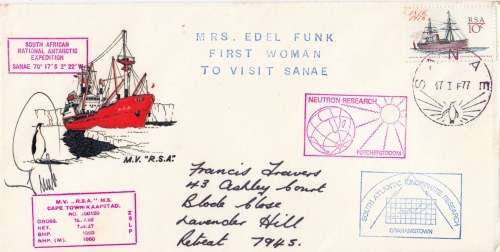 SOUTH AFRICAN
NATIONAL ANTARCTIC
EXPEDITION
SANAE 70° 17'S 2° 22'W
MRS. EDEL FUNK
FIRST WOMAN
TO VISIT SANAE
RSA
10c
SANAE
17 I 77
R.S.A.
M.V. "R.S.A."
NEUTRON RESEARCH
POTCHEFSTROOM
M.V. „R.S.A." M.S.
CAPE TOWN/KAAPSTAD.
NO.
GROSS.
NET.
BHP.
NHP. (M).
ZSLP
Francis Travers
43 Ashley Court
Blode Close
Lavender Hill
Retreat 7945.
SOUTH ATLANTIC RESEARCH
GRAHAMSTOWN